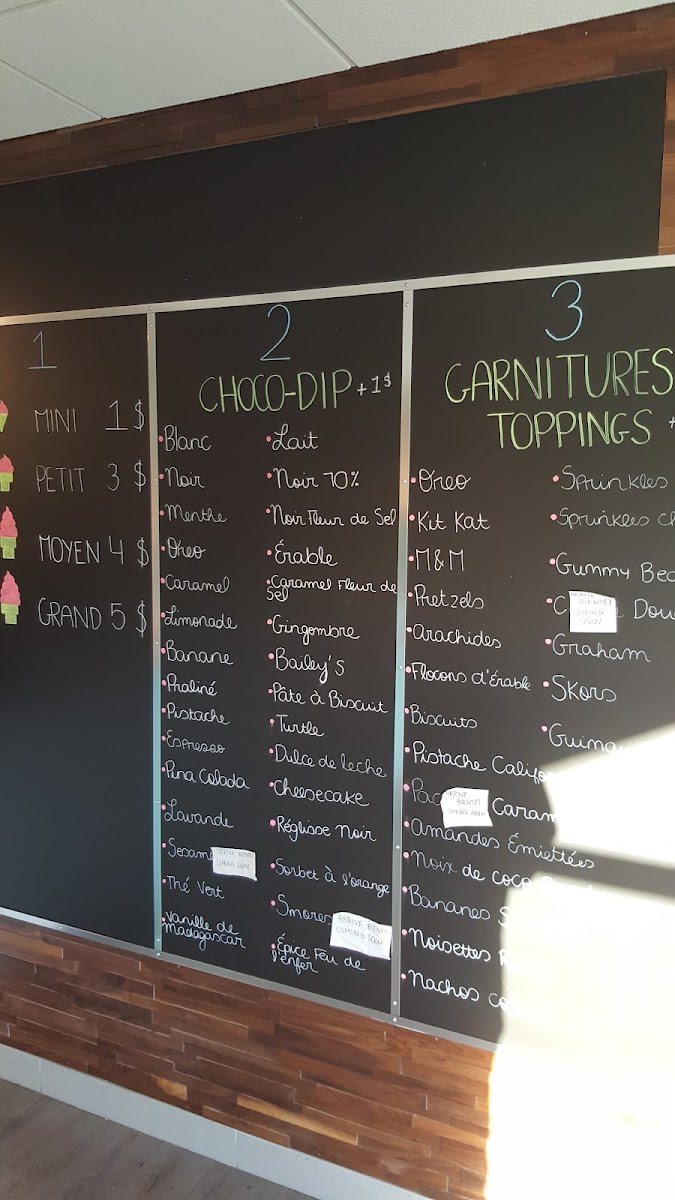 1
MINI 1$
PETIT 3$
MOYEN 4$
GRAND 5$
2
CHOCO-DIP +1$
Blanc
Noir
Menthe
Oreo
Caramel
Limonade
Banane
Praliné
Pistache
Espresso
Pina Colada
Lavande
Sesame
ARRIVE BIENTÔT
COMING SOON
Thé Vert
Vanille de
madagascar
Lait
Noir 70%
Noir Fleur de Sel
Érable
Caramel Fleur de
Sel
Gingembre
Bailey's
Pâte à Biscuit
Turtle
Dulce de leche
Cheesecake
Réglisse Noir
Sorbet à l'orange
Smores
ARRIVE BIENTÔT
COMING SOON
Épice Feu de
l'enfer
3
GARNITURES
TOPPINGS +
Oreo
Kit Kat
M&M
Pretzels
Arachides
Flocons d'Érable
Biscuits
Pistache
ARRIVE BIENTÔT
COMING SOON
Amandes Émiettées
Noix de coco
Bananes
Noisettes
Nachos
Sprinkles
Sprinkles
Gummy
ARRIVE BIENTÔT
COMING SOON
Graham
Skors